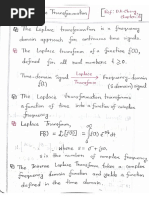 Transformation
Ref: D.K. Cheng
Chapter
The Laplace transformation is a frequency
domain approach for continuous time signals
The Laplace transform of a function f(t),
defined for all real numbers t ≥ 0.
Time-domain signal Laplace Transform Frequency domain
(S-domain) signal
The Laplace transformation transforms
a function of time into a function of complex
frequency.
Laplace Transform,
F(s) = L{f(t)} = ∫ f(t) e^-st dt
where, s = σ + jω,
s is the numbers of complex frequency
The Inverse Laplace Transform, takes a
function of complex frequency and yields
a function defined in the time domain.